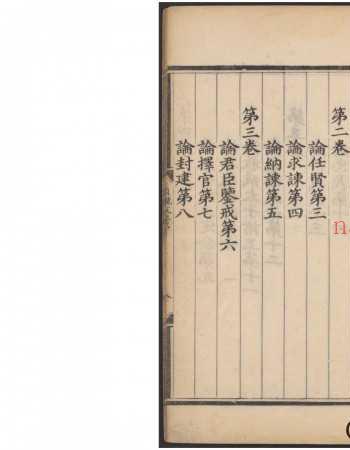 第二卷
論任賢第三
論求諫第四
論納諫第五
第三卷
論君臣鑒戒第六
論擇官第七
論封建第八